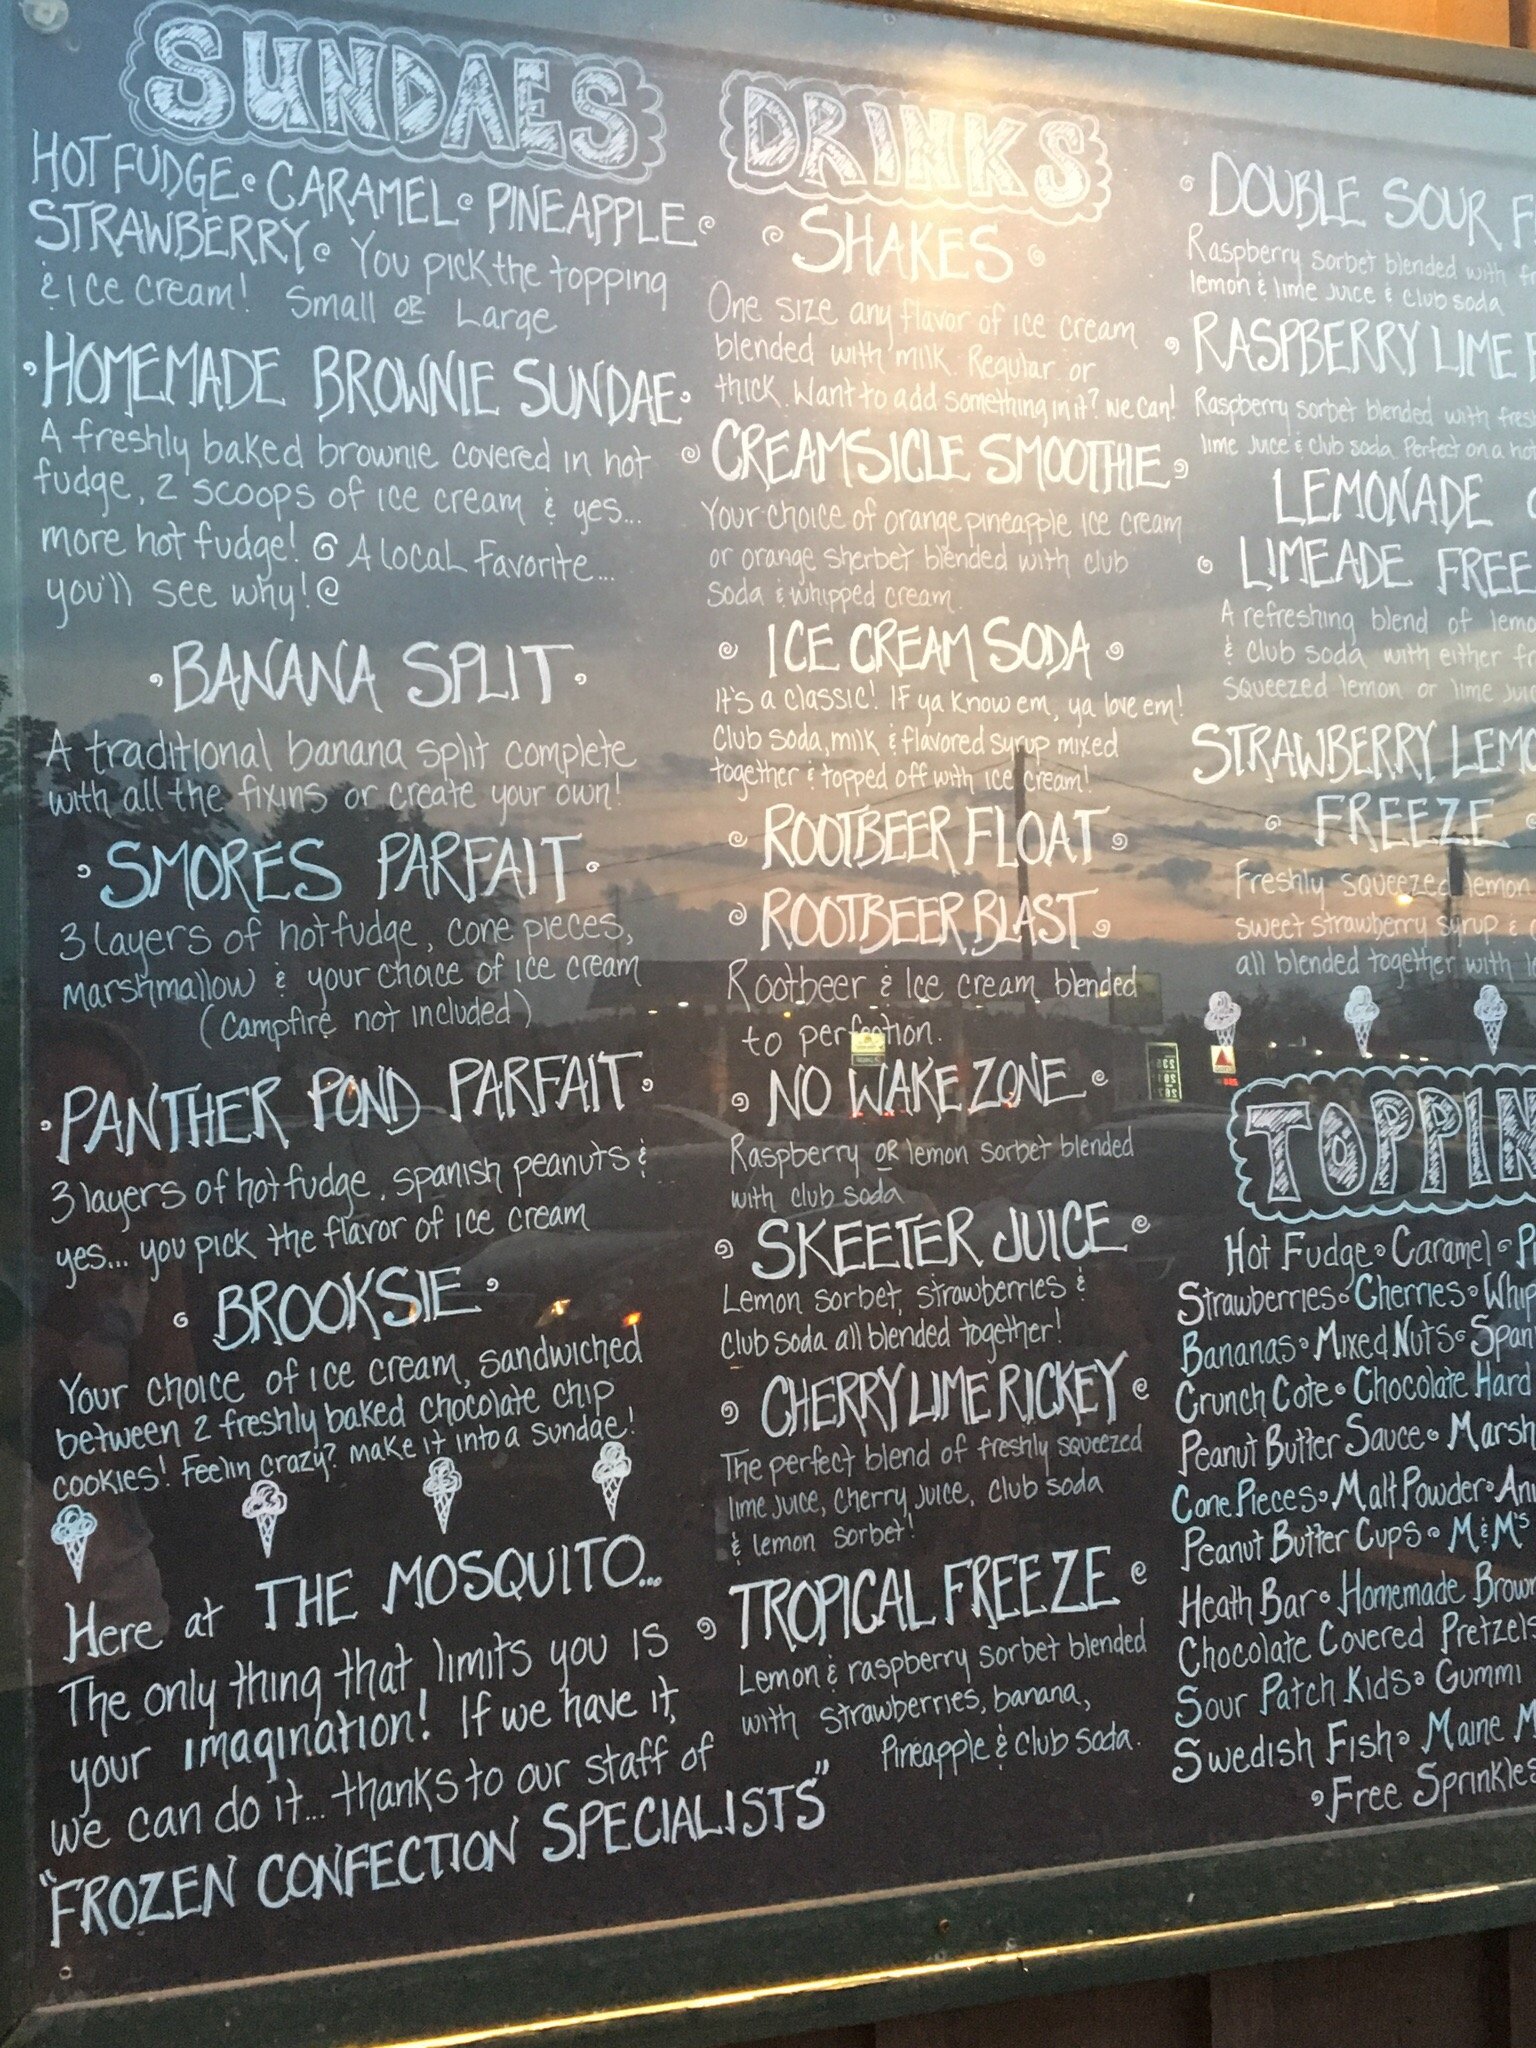 SUNDAES
HOT FUDGE CARAMEL PINEAPPLE
STRAWBERRY You pick the topping
& Ice cream! Small OR Large
HOMEMADE BROWNIE SUNDAE
A freshly baked brownie covered in hot
fudge, 2 scoops of ice cream & yes...
more hot fudge! A local favorite...
you'll see why!
BANANA SPLIT
A traditional banana split complete
with all the fixins or create your own!
SMORES PARFAIT
3 layers of hot fudge, cone pieces,
marshmallow & your choice of ice cream
(Campfire not included)
PANTHER POND PARFAIT
3 layers of hot fudge, spanish peanuts &
yes... you pick the flavor of ice cream
BROOKSIE
Your choice of ice cream, sandwiched
between 2 freshly baked chocolate chip
cookies! Feelin crazy? make it into a sundae!
Here at THE MOSQUITO...
The only thing that limits you is
your imagination! If we have it,
we can do it... thanks to our staff of
"FROZEN CONFECTION SPECIALISTS"
DRINKS
SHAKES
One size any flavor of ice cream
blended with milk. Regular or
thick. Want to add something in it? we can!
CREAMSICLE SMOOTHIE
Your choice of orange pineapple ice cream
or orange sherbet blended with club
soda & whipped cream.
ICE CREAM SODA
It's a classic! If ya know em, ya love em!
Club soda, milk & flavored syrup mixed
together & topped off with ice cream!
ROOTBEER FLOAT
ROOTBEER BLAST
Rootbeer & Ice cream blended
to perfection.
NO WAKE ZONE
Raspberry OR lemon sorbet blended
with club soda
SKEETER JUICE
Lemon sorbet, strawberries &
club soda all blended together!
CHERRY LIME RICKEY
The perfect blend of freshly squeezed
lime juice, cherry juice, club soda
& lemon sorbet!
TROPICAL FREEZE
Lemon & raspberry sorbet blended
with strawberries, banana,
Pineapple & club soda.
DOUBLE SOUR F
Raspberry sorbet blended with
lemon & lime juice & club soda
RASPBERRY LIME
Raspberry sorbet blended with fres
lime juice & club soda. Perfect on a ho
LEMONADE
LIMEADE FREE
A refreshing blend of lemo
& club soda with either fr
squeezed lemon or lime jui
STRAWBERRY LEMO
FREEZE
Freshly squeezed lemon
sweet strawberry syrup &
all blended together with
TOPPIN
Hot Fudge Caramel P
Strawberries Cherries Whip
Bananas Mixed Nuts Span
Crunch Cote Chocolate Hard
Peanut Butter Sauce Marsh
Cone Pieces Malt Powder An
Peanut Butter Cups M&M's
Heath Bar Homemade Brow
Chocolate Covered Pretzels
Sour Patch Kids Gummi
Swedish Fish Maine M
Free Sprinkles